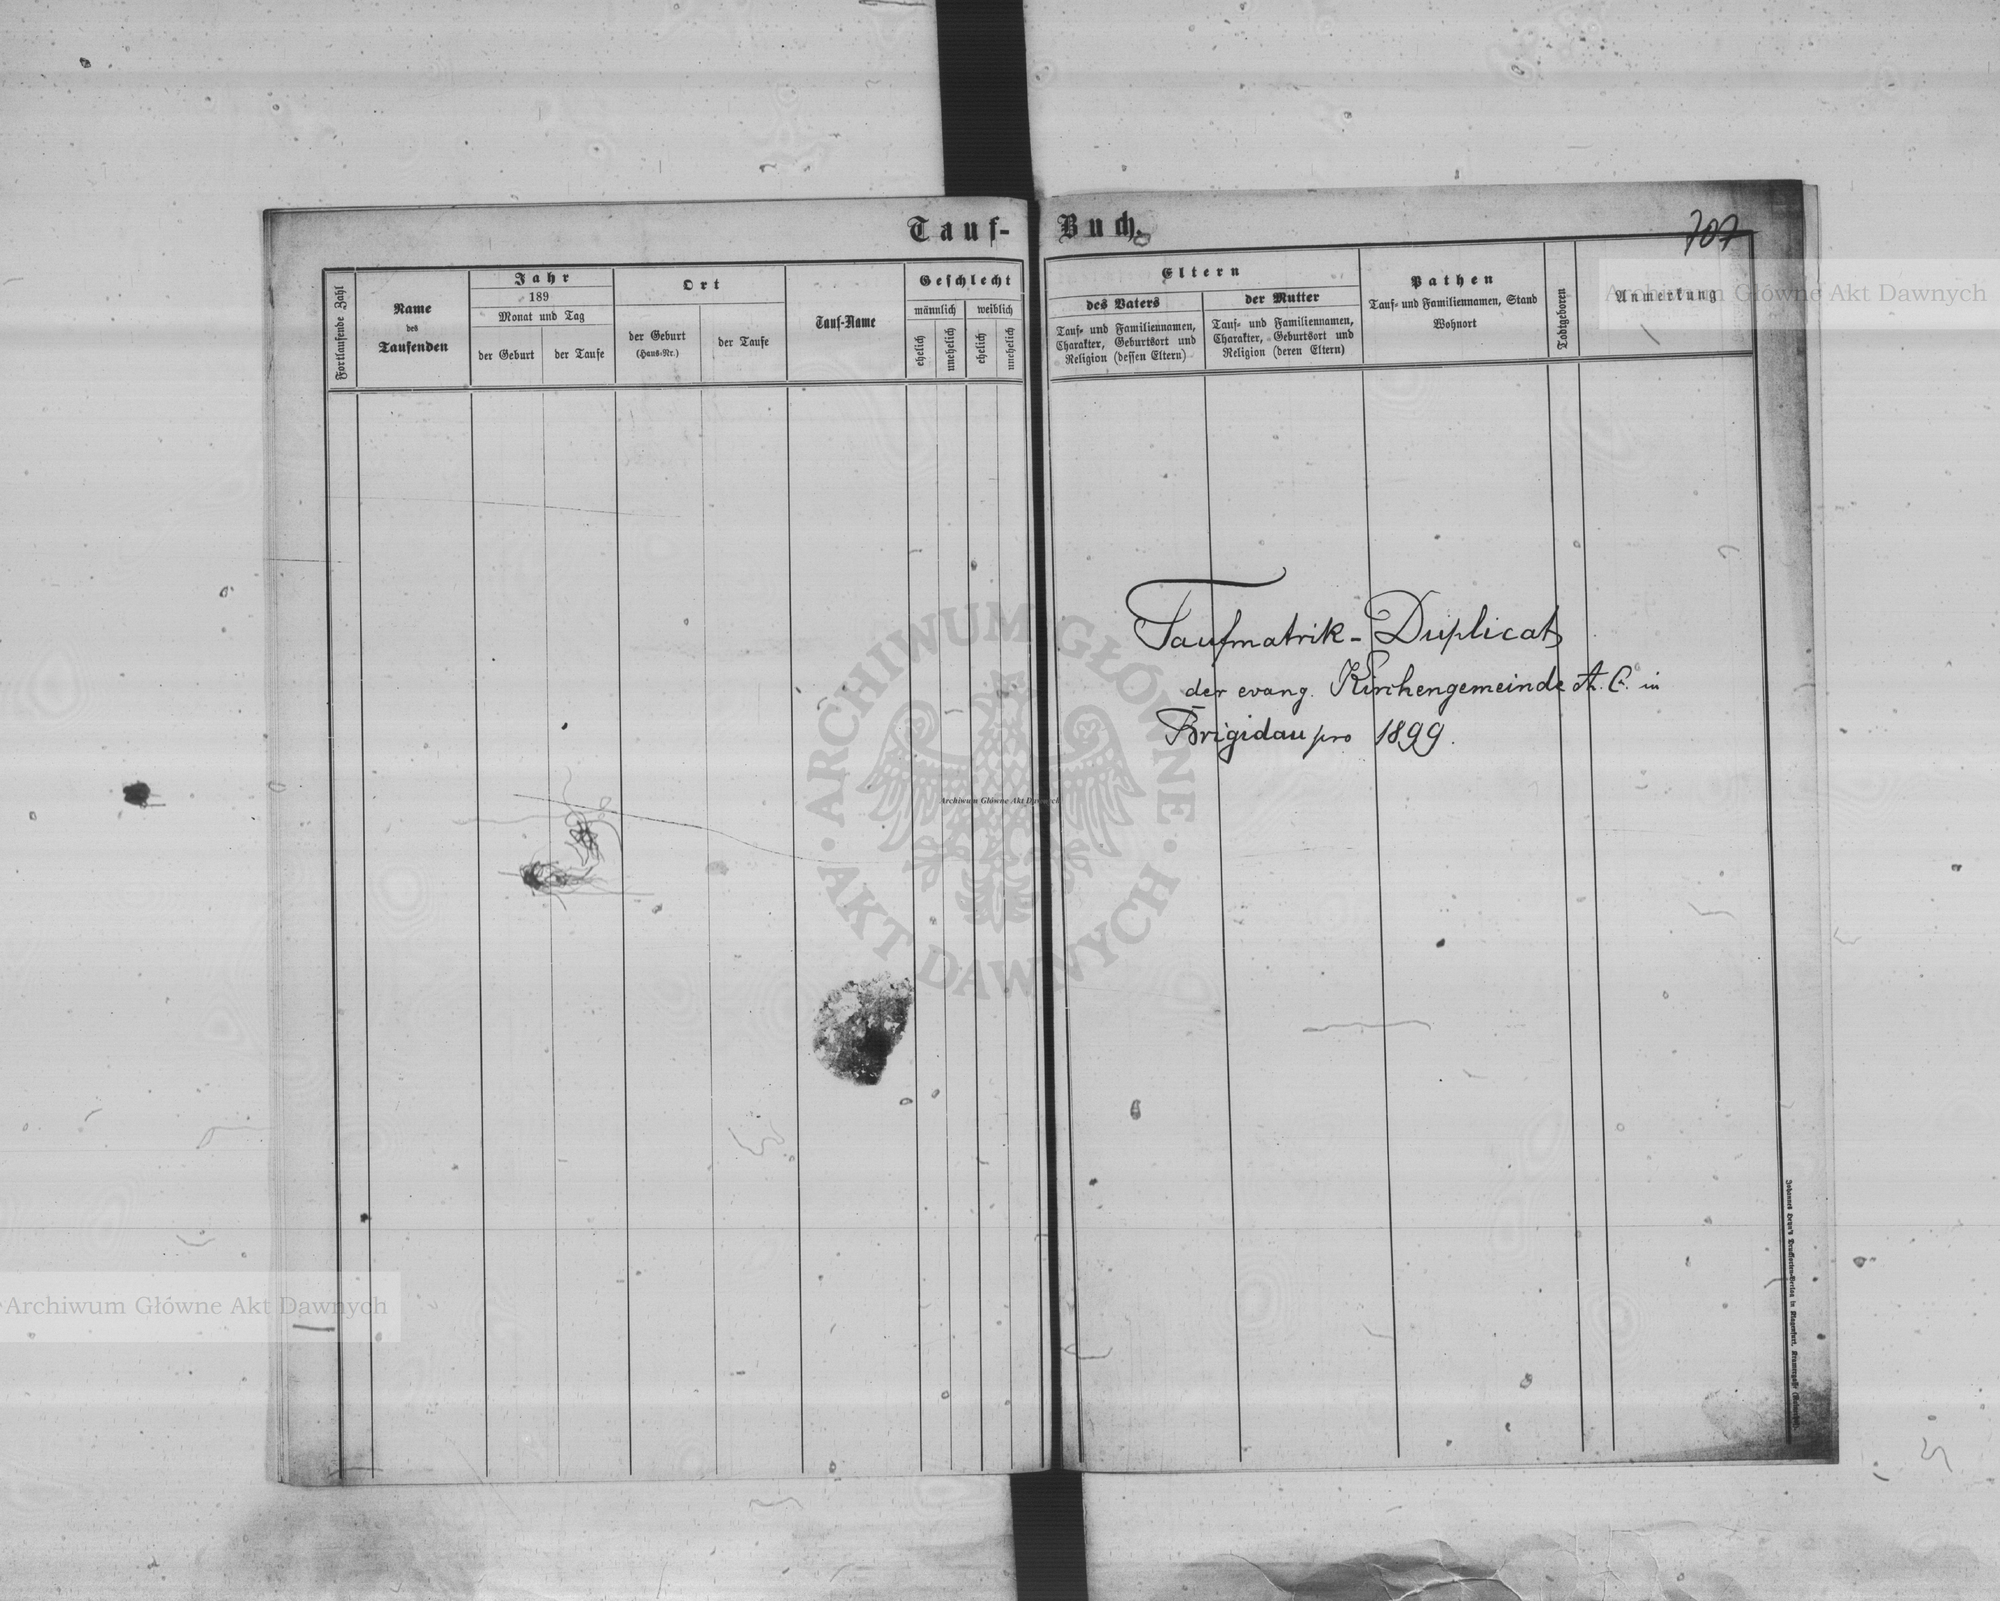 Tauf-Buch.
707
Fortlaufende Zahl
Name
des
Taufenden
Jahr
189
Monat und Tag
der Geburt
der Taufe
Ort
der Geburt
(Haus-Nr.)
der Taufe
Tauf-Name
Geschlecht
männlich
weiblich
ehelich
unehelich
ehelich
unehelich
Eltern
des Vaters
Tauf- und Familiennamen,
Charakter, Geburtsort und
Religion (dessen Eltern)
der Mutter
Tauf- und Familiennamen,
Charakter, Geburtsort und
Religion (deren Eltern)
Pathen
Tauf- und Familiennamen, Stand
Wohnort
Todtgeboren
Anmerkung
Archiwum Główne Akt Dawnych
Taufmatrik-Duplicat
der evang. Kirchengemeinde A. C. in
Brigidau pro 1899.
ARCHIWUM GŁÓWNE
AKT DAWNYCH
Archiwum Główne Akt Dawnych
Archiwum Główne Akt Dawnych
Verlag in Klagenfurt.